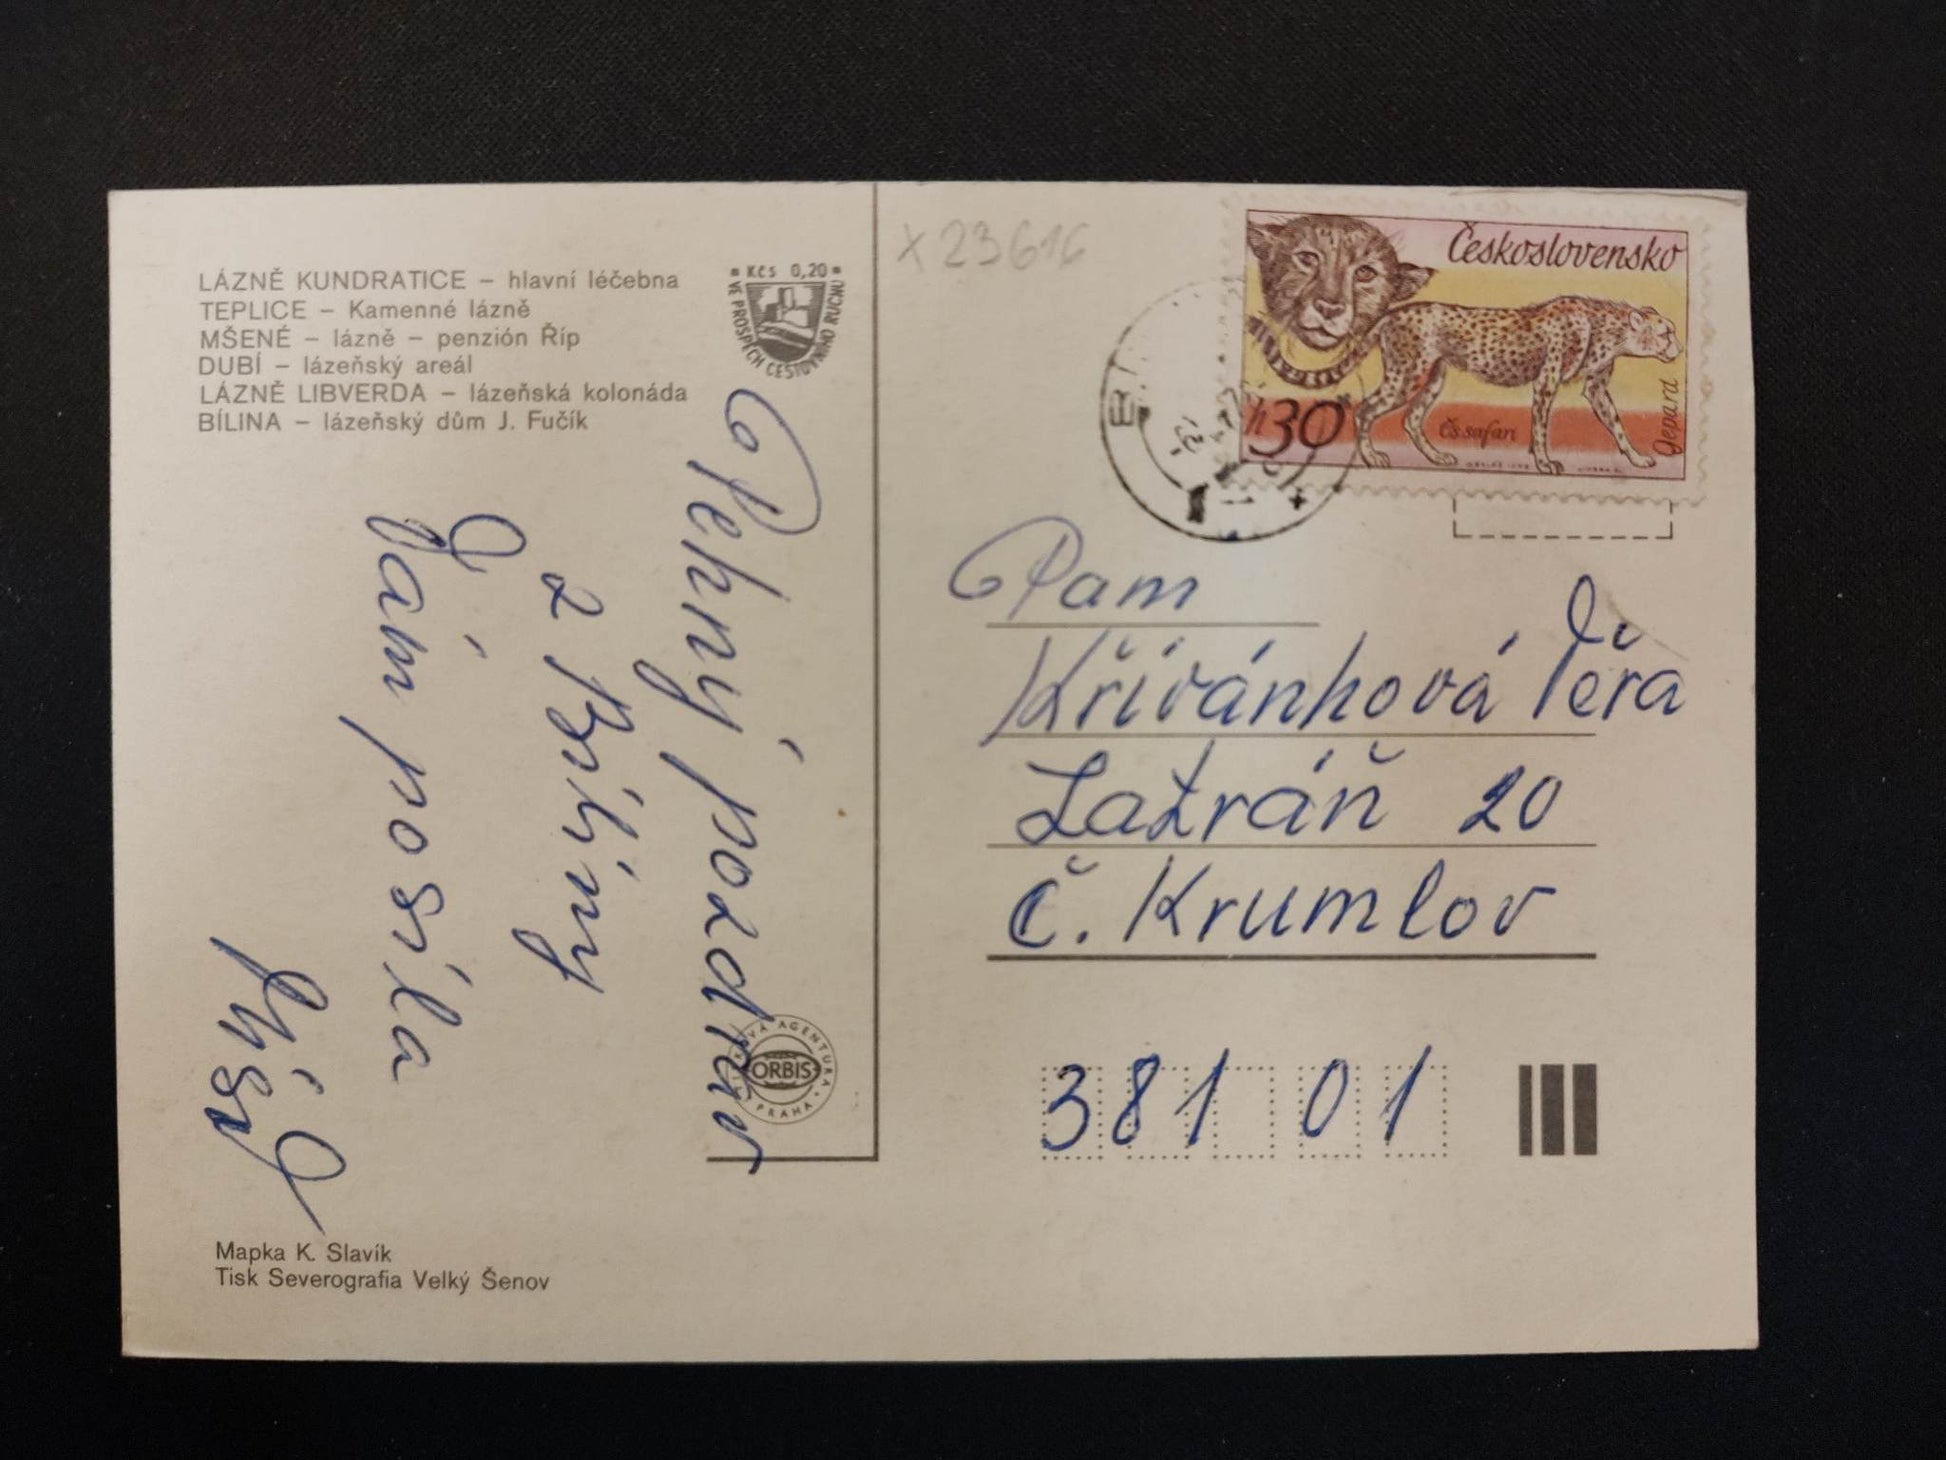 LÁZNĚ KUNDRATICE – hlavní léčebna
TEPLICE – Kamenné lázně
MŠENÉ – lázně – penzión Říp
DUBÍ – lázeňský areál
LÁZNĚ LIBVERDA – lázeňská kolonáda
BÍLINA – lázeňský dům J. Fučík
Kčs 0,20
VE PROSPĚCH CESTOVNÍHO RUCHU
Pěkný pozdrav
z Bíliny
Vám posílá
ORBIS
TISKOVÁ AGENTURA
PRAHA
Mapka K. Slavík
Tisk Severografia Velký Šenov
x23616
Československo
h30
Čs safari
Gepard
Paní
Křivánková Věra
Latráň 20
Č. Krumlov
381 01